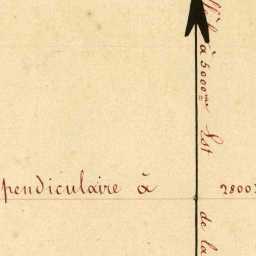 pendiculaire à 2800
à 5000 m Est
de la